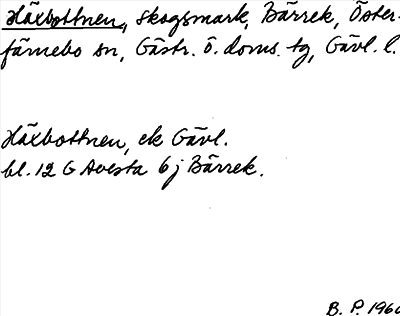 Häxbottnen, skogsmark, Bärrek, Öster-
färnebo sn, Gästr. ö. doms. tg, Gävl. l.
Häxbottnen, ek Gävl.
bl. 12 G Avesta 6 j Bärrek.
B. P. 1960